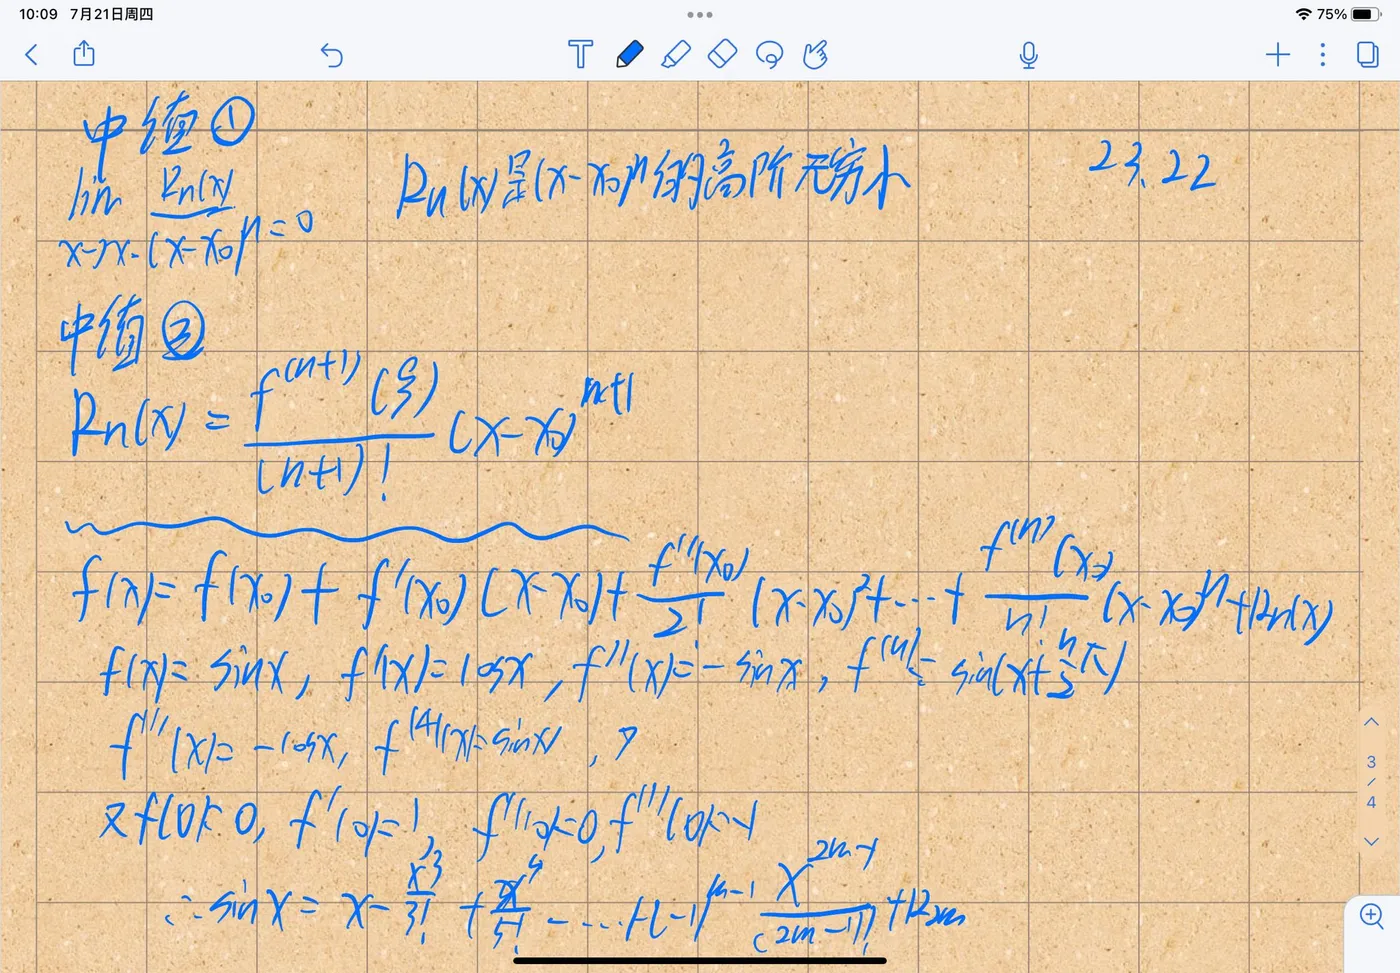 10:09 7月21日周四
75%
中值①
lim Rn(x)/(x-x₀)ⁿ = 0
x→x₀
Rn(x)是(x-x₀)ⁿ的高阶无穷小
23.22
中值②
Rn(x) = f⁽ⁿ⁺¹⁾(ξ)/(n+1)! (x-x₀)ⁿ⁺¹
f(x) = f(x₀) + f'(x₀)(x-x₀) + f''(x₀)/2! (x-x₀)² + … + f⁽ⁿ⁾(x₀)/n! (x-x₀)ⁿ + Rn(x)
f(x) = sinx, f'(x) = cosx, f''(x) = -sinx, f⁽ⁿ⁾ = sin(x + n/2 π)
f'''(x) = -cosx, f⁽⁴⁾(x) = sinx,
又f(0)=0, f'(0)=1, f''(0)=0, f'''(0)=-1
∴ sinx = x - x³/3! + x⁵/5! - … + (-1)ᵐ⁻¹ x²ᵐ⁻¹/(2m-1)! + R₂ₘ
3
/
4